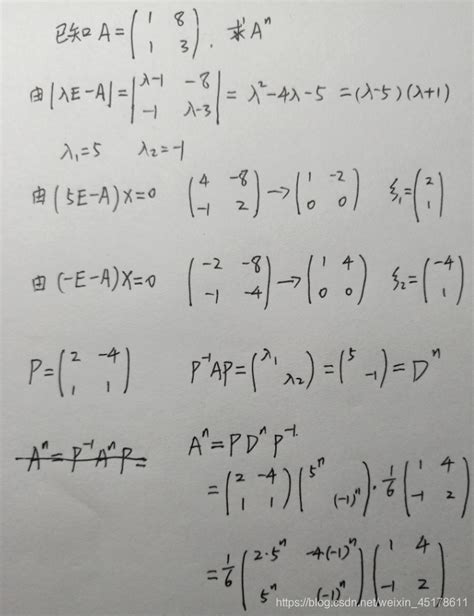 已知 A = (1 8
1 3), 求 A^n
由 |λE-A| = |λ-1 -8
-1 λ-3| = λ²-4λ-5 = (λ-5)(λ+1)
λ₁=5 λ₂=-1
由 (5E-A)X=0 (4 -8
-1 2) → (1 -2
0 0) ξ₁=(2
1)
由 (-E-A)X=0 (-2 -8
-1 -4) → (1 4
0 0) ξ₂=(-4
1)
P=(2 -4
1 1) P⁻¹AP=(λ₁
λ₂)=(5
-1)=D^n
A^n=P⁻¹A^nP= A^n=PD^nP⁻¹
=(2 -4
1 1)(5^n
(-1)^n)·1/6(1 4
-1 2)
=1/6(2·5^n -4(-1)^n
5^n (-1)^n)(1 4
-1 2)
https://blog.csdn.net/weixin_45178611